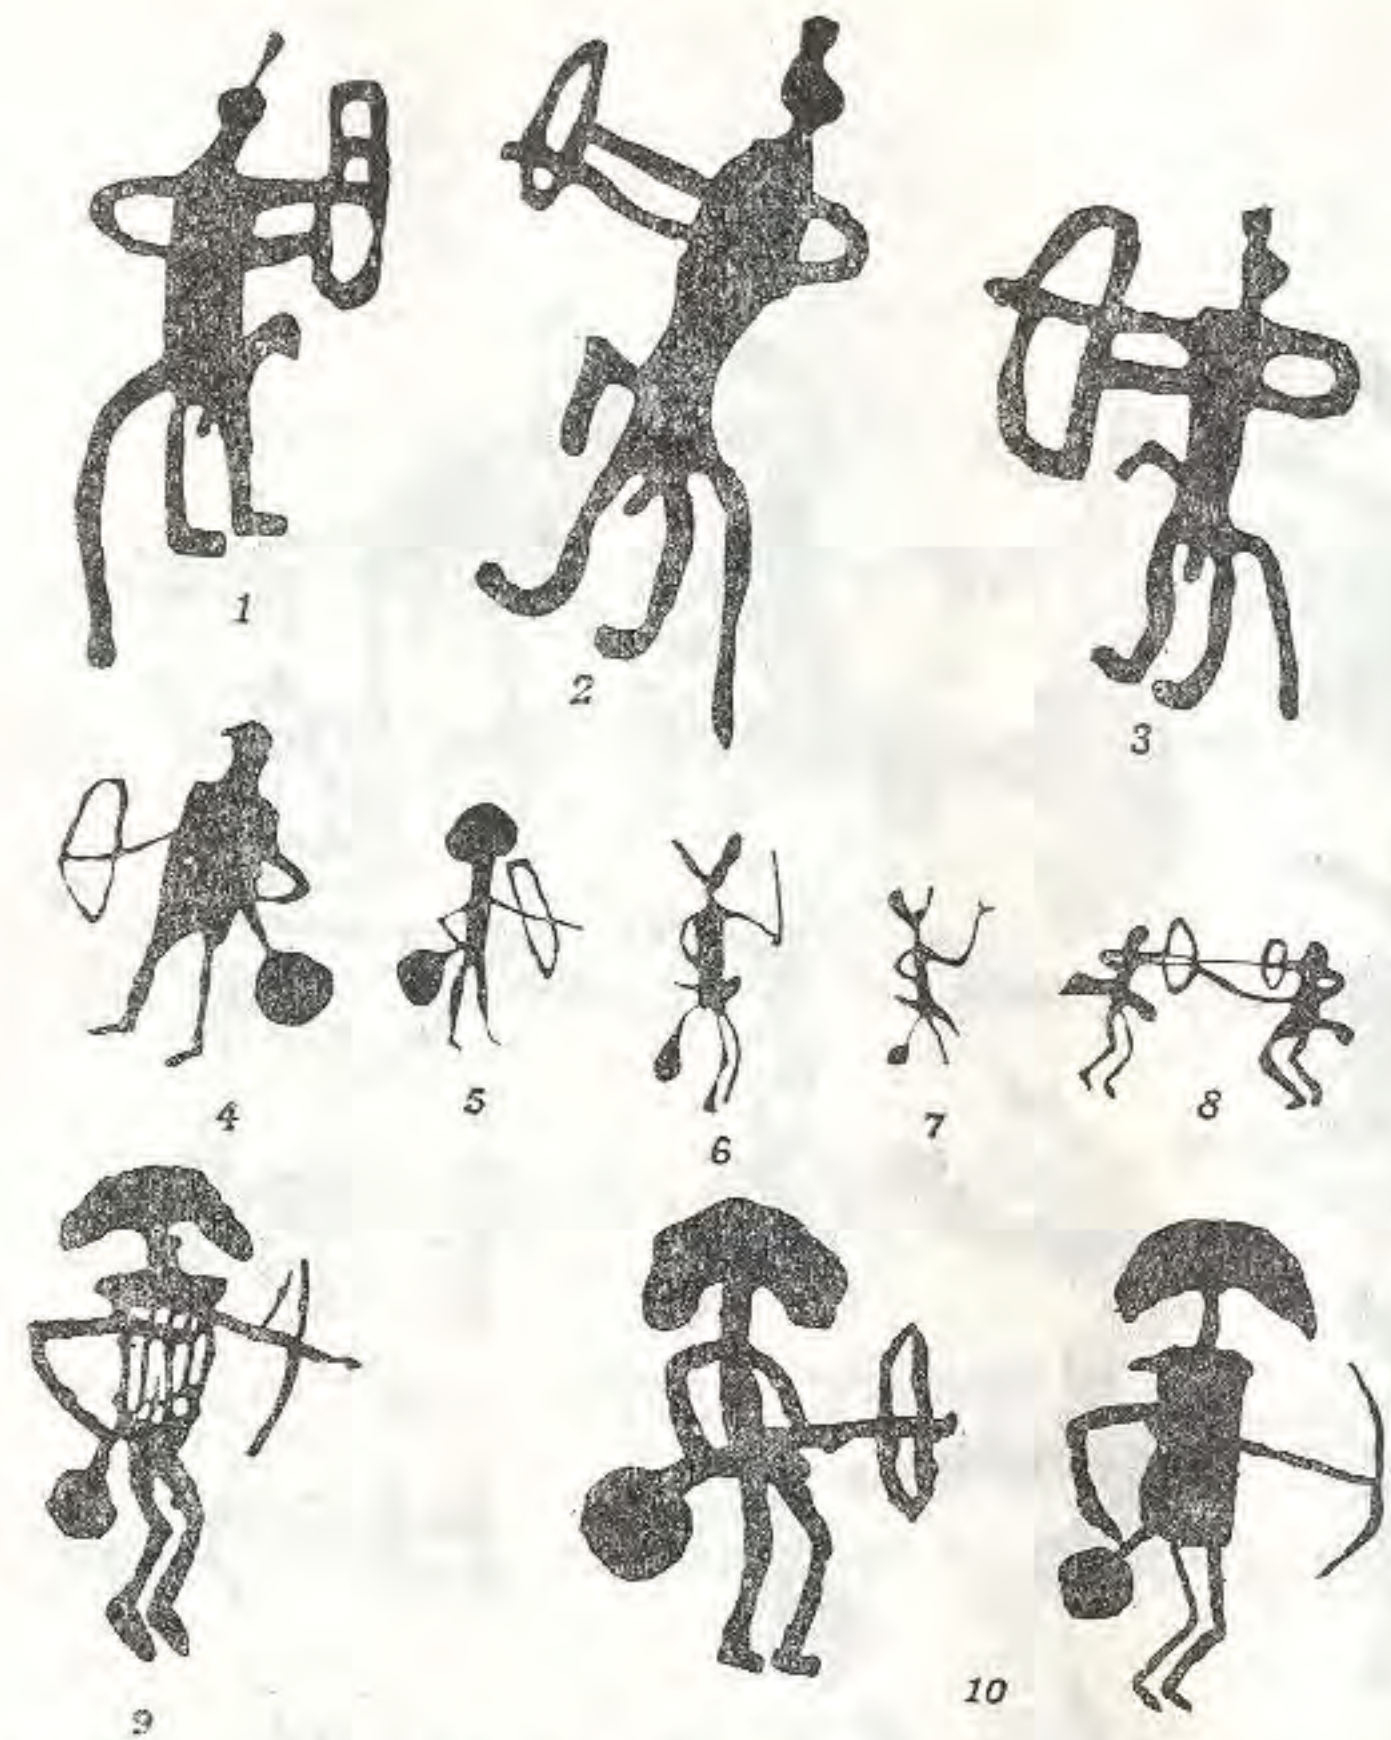 1
2
3
4
5
6
7
8
9
10